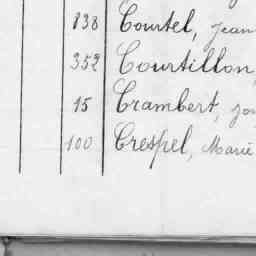 838 Courtel, Jean
352 Courtillon,
15 Crambert,
100 Crespel, Marie